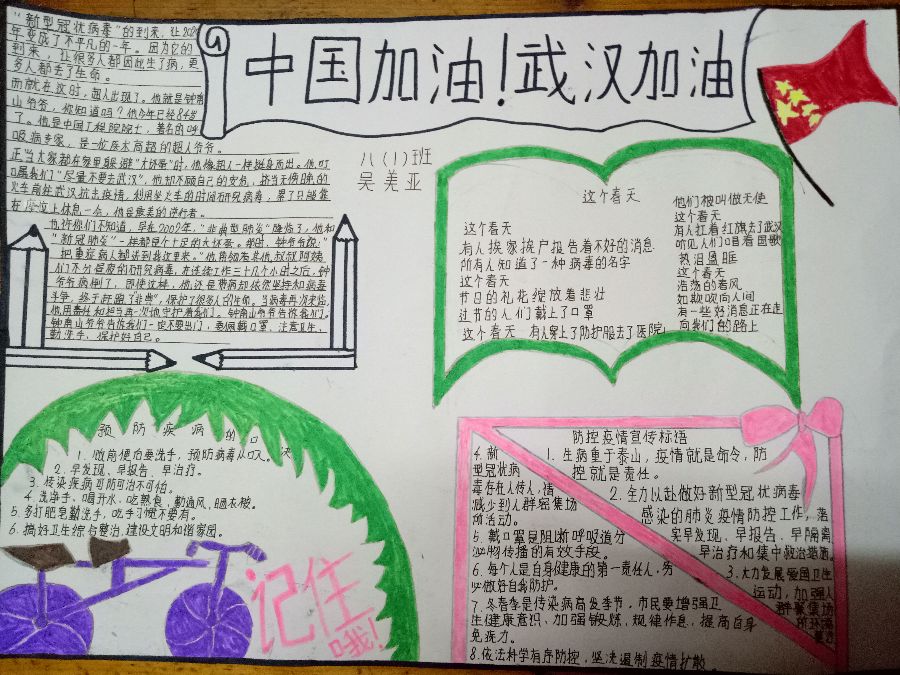 中国加油!武汉加油
八(1)班
吴美亚
"新型冠状病毒"的到来,让202
年变成了不平凡的一年。因为它的
到来,让很多人都因此生了病,更
多人都丢了生命。
而就在这时,超人出现了。他就是钟南
山爷爷。你知道吗?他今年已经84岁
了。他是中国工程院院士,著名的呼
吸病专家,是一位医术高超的超人爷爷。
正当大家都在家里躲避"大坏蛋"时,他像超人一样挺身而出。他叮
嘱我们"尽量不要去武汉",他却不顾自己的安危,挤当天傍晚的
火车前往武汉抗击疫情,利用坐火车的时间研究病毒,累了只能靠
在座位上休息一会,他是最美的逆行者。
也许你们不知道,早在2002年,"非典型肺炎"降临了,他和
"新冠肺炎"一样都是个十足的大坏蛋。那时,钟爷爷说:
"把重症病人都送到我这里来。"
们不分昼夜的研究病毒,在连续工作三十几个小时之后,钟
爷爷病倒了,即使这样,他还是带病却依然坚持和病毒
斗争,终于赶跑了"非典",保护了很多人的生命。当病毒再次来临,
他用责任和担当再一次地守护着我们。钟南山爷爷告诉我们,
钟南山爷爷告诉我们一定不要出门,要佩戴口罩,注意卫生,
勤洗手,保护好自己。
这个春天
这个春天
有人挨家挨户报告着不好的消息
所有人知道了一种病毒的名字
这个春天
节日的礼花绽放着悲壮
过节的人们戴上了口罩
这个春天 有人穿上了防护服去了医院
他们被叫做天使
这个春天
有人扛着红旗去了武汉
听见人们唱着国歌
热泪盈眶
这个春天
浩荡的春风
如期吹向人间
有一些好消息正在走
向我们的路上
预防疾病的口
诀
1. 饭前便后要洗手,预防病毒从口入。
2. 早发现、早报告、早治疗。
3. 传染疾病可防可治不可怕。
4. 洗净手、喝开水、吃熟食、勤通风、晒衣被。
5. 多打肥皂勤洗手,吃手习惯不要有。
6. 搞好卫生综合整治,建设文明和谐家园。
记住
哦!
防控疫情宣传标语
1. 生病重于泰山,疫情就是命令,防
控就是责任。
2. 全力以赴做好新型冠状病毒
感染的肺炎疫情防控工作,落
实早发现、早报告、早隔离
早治疗和集中救治措施。
3. 大力发展爱国卫生
运动,加强人
群聚集场
所环境
4. 新
型冠状病
毒存在人传人,请
减少到人群密集场
所活动。
5. 戴口罩是阻断呼吸道分
泌物传播的有效手段。
6. 每个人是自身健康的第一责任人,务
必做好自我防护。
7. 冬春季是传染病高发季节,市民要增强卫
生健康意识,加强锻炼,规律作息,提高自身
免疫力。
8. 依法科学有序防控,坚决遏制疫情扩散。